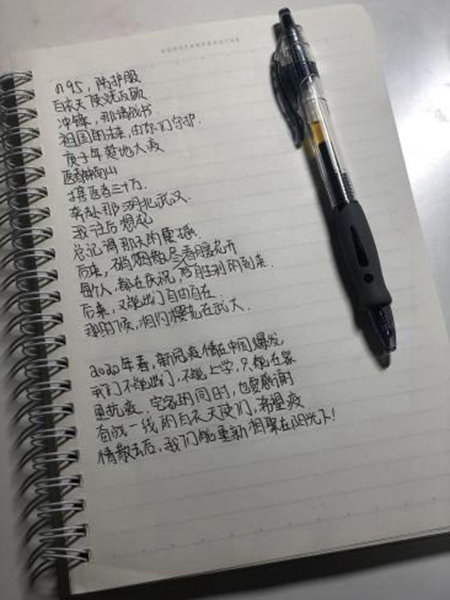 n95，防护服
白衣天使
冲锋，那请战书
祖国的未来，由你们守护.
庚子年
医者
援医者三十万.
奔赴那湖北武汉.
我往后想起
总记得那天的
后来，硝烟散尽春暖花开
每个人，都在庆祝，胜利的到来.
后来，又能出门自由自在
我们约定，相约樱花在武大.
2020年春，新冠疫情在中国爆发
我们不能出门，不能上学，只能在家
里抗疫. 宅家的同时，也要感谢
奋战一线的白衣天使们，希望疫
情散去后，我们能重新相聚在阳光下！